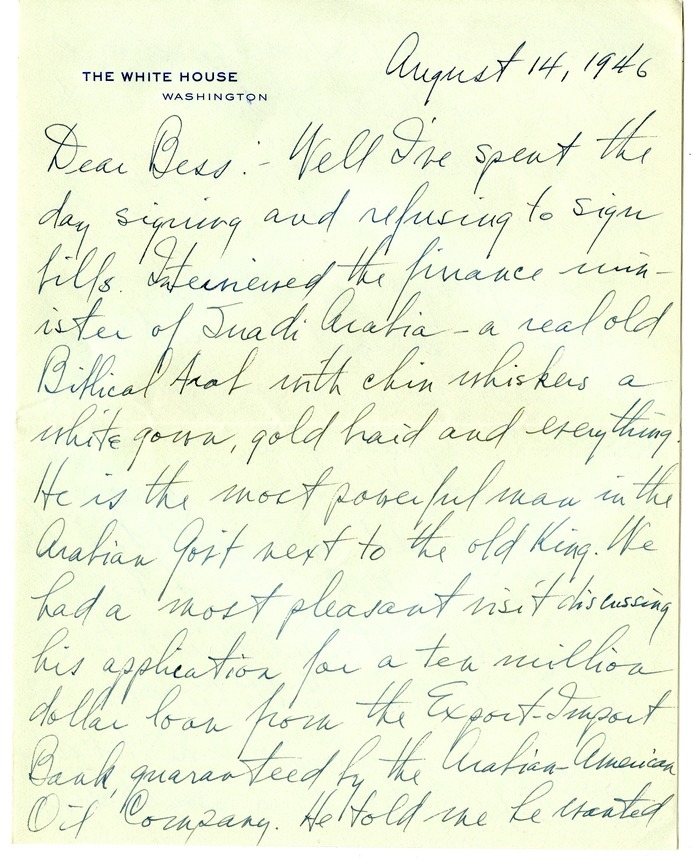 THE WHITE HOUSE
WASHINGTON
August 14, 1946
Dear Bess:- Well I've spent the
day signing and refusing to sign
bills. Interviewed the finance min-
ister of Suadi Arabia - a real old
Biblical Arab with chin whiskers a
white gown, gold braid and everything.
He is the most powerful man in the
Arabian Gov't next to the old King. We
had a most pleasant visit discussing
his application for a ten million
dollar loan from the Export-Import
Bank, guaranteed by the Arabian-American
Oil Company. He told me he wanted